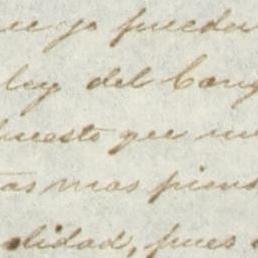 ue yo pueda
ley del Cong
puesto que
tas mas piens
lidad, pues